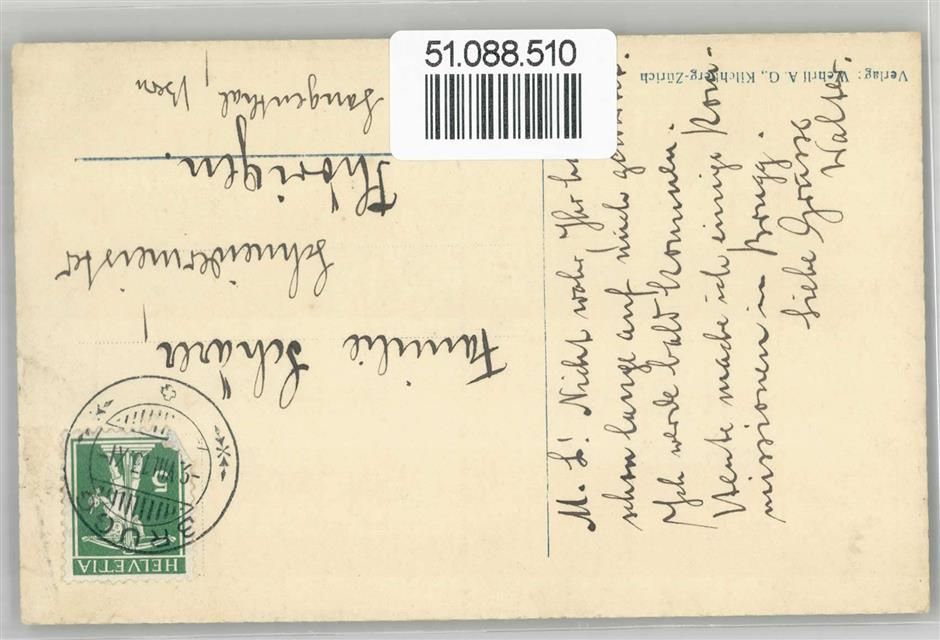 51.088.510
Verlag: Wehrli A. G., Kilchberg-Zürich
M. L! Nicht wahr, Ihr
schon lange auf mich
Ich werde bald kommen.
Heute mache ich einige Kom-
missionen in Brugg.
Liebe Grüsse
Walter.
Familie Schärer,
Schneidermeister
Thörigen.
Langenthal, Bern
BRUGG
HELVETIA
5